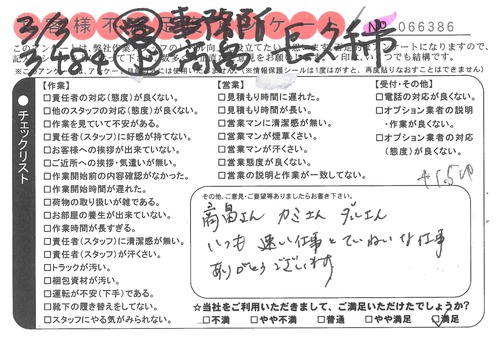 お客様不満足アンケート No. 066386
3/3 事務所
3484 高畠 長久手市
□ チェックリスト
【作業】
□責任者の対応(態度)が良くない。
□他のスタッフの対応(態度)が良くない。
□作業を見ていて不安がある。
□責任者(スタッフ)に好感が持てない。
□お客様への挨拶が出来ていない。
□ご近所への挨拶・気遣いが無い。
□作業開始前の内容確認がなかった。
□作業開始時間が遅れた。
□荷物の取り扱いが雑である。
□お部屋の養生が出来ていない。
□作業時間が長すぎる。
□責任者(スタッフ)に清潔感が無い。
□責任者(スタッフ)が汗くさい。
□トラックが汚い。
□梱包資材が汚い。
□運転が不安(下手)である。
□靴下の履き替えをしてない。
□スタッフにやる気がみられない。
【営業】
□見積もり時間に遅れた。
□見積もり時間が長い。
□営業マンに清潔感が無い。
□営業マンが煙草くさい。
□営業マンが汗くさい。
□営業態度が良くない。
□営業の説明と作業が一致してない。
【受付・その他】
□電話の対応が良くない。
□オプション業者の説明
・作業が良くない。
□オプション業者の対応
(態度)が良くない。
その他、ご意見・ご要望等ありましたらお書き下さい。
高畠さん カミさん
いつも 速い仕事と ていねいな仕事
ありがとうございます
☆当社をご利用いただきまして、ご満足いただけたでしょうか?
□不満 □やや不満 □普通 □やや満足 ☑満足